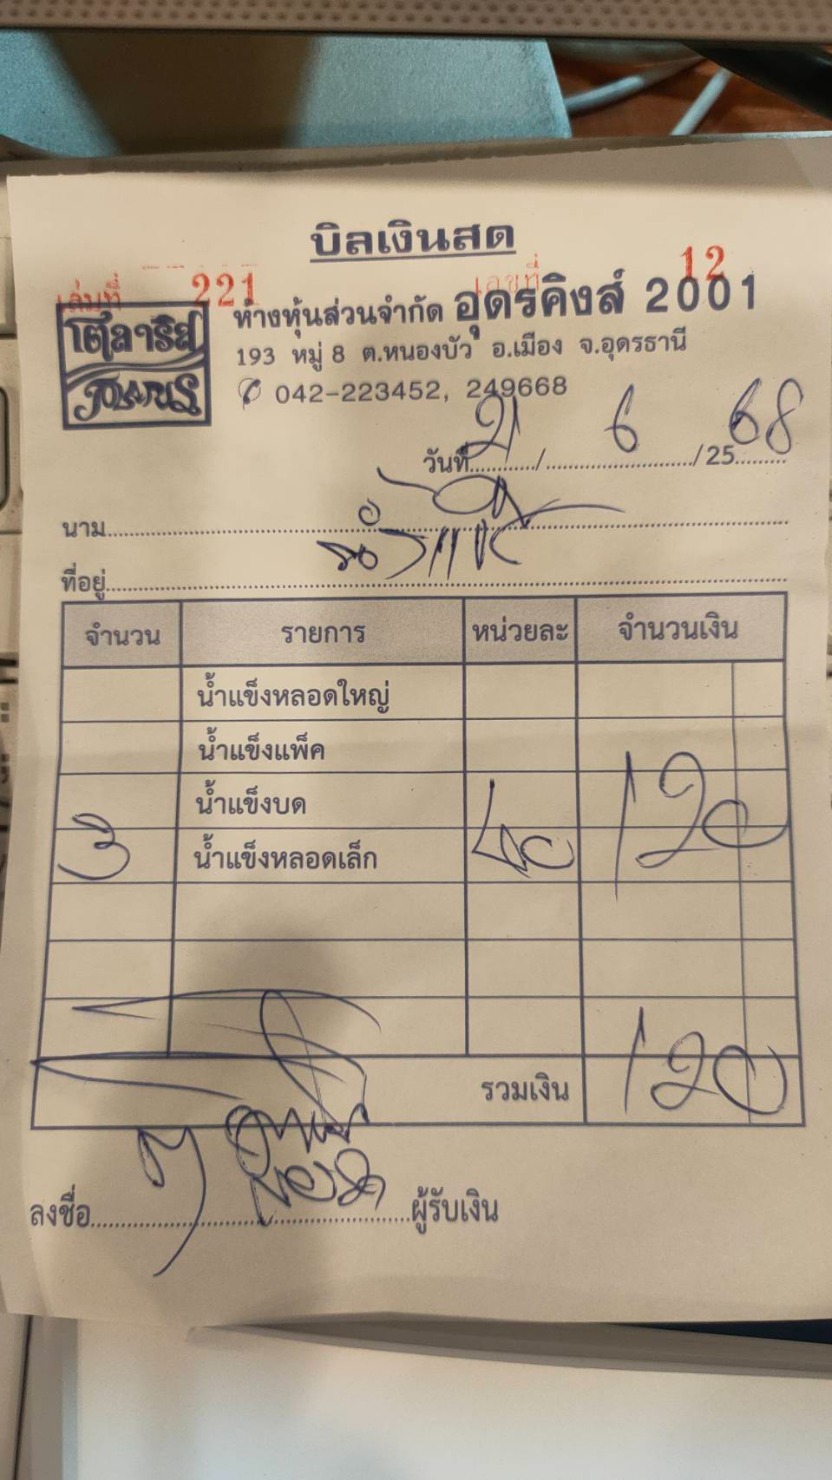 บิลเงินสด
เล่มที่ 221 เลขที่ 12
โพลาริส
ห้างหุ้นส่วนจำกัด อุดรคิงส์ 2001
193 หมู่ 8 ต.หนองบัว อ.เมือง จ.อุดรธานี
042-223452, 249668
วันที่ 21 / 6 / 25 68
นาม
ที่อยู่
จำนวน รายการ หน่วยละ จำนวนเงิน
น้ำแข็งหลอดใหญ่
น้ำแข็งแพ็ค
น้ำแข็งบด
3 น้ำแข็งหลอดเล็ก 40 120
รวมเงิน 120
ลงชื่อ ผู้รับเงิน